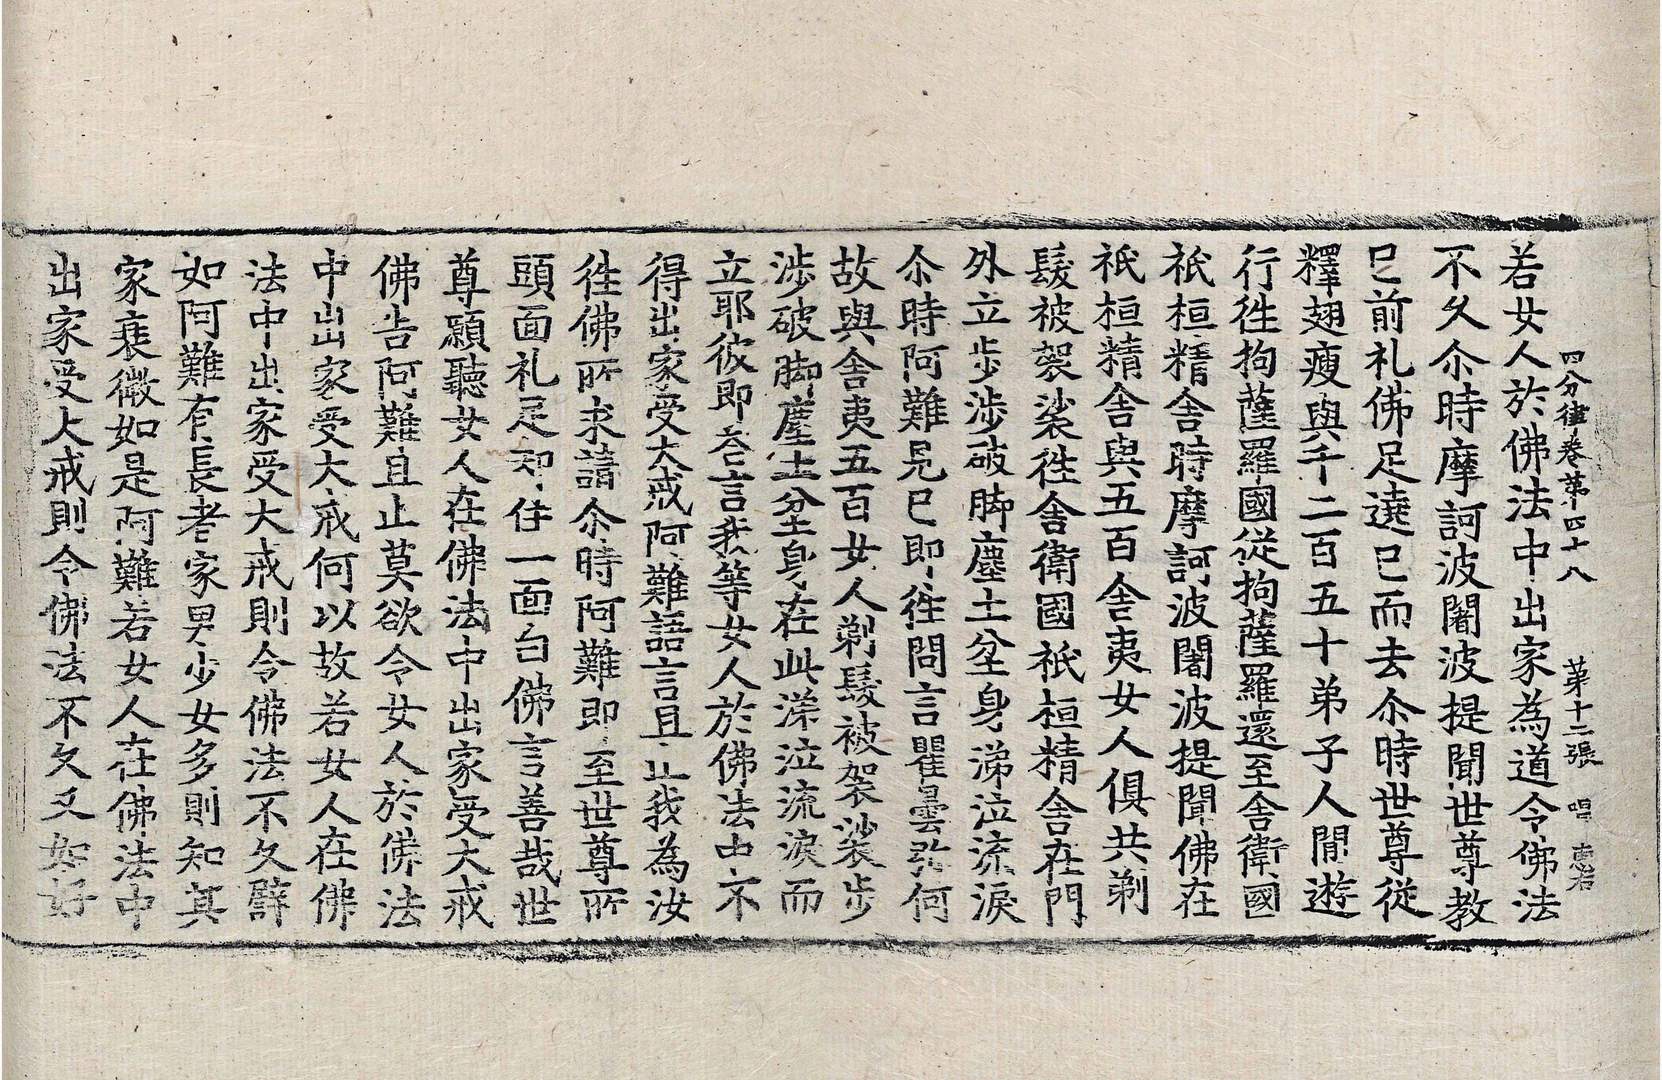 四分律卷第四十八 第十二張 唱
若女人於佛法中出家為道令佛法
不久尒時摩訶波闍波提聞世尊教
已前礼佛足遶已而去尒時世尊從
釋翅瘦與千二百五十弟子人間遊
行徃拘薩羅國從拘薩羅還至舍衛國
祇桓精舍時摩訶波闍波提聞佛在
祇桓精舍與五百舍夷女人俱共剃
髮被袈裟徃舍衛國祇桓精舍在門
外立步涉破脚塵土坌身涕泣流淚
尒時阿難見已即徃問言瞿曇弥何
故與舍夷五百女人剃髮被袈裟步
涉破脚塵土坌身在此涕泣流淚而
立耶彼即荅言我等女人於佛法中不
得出家受大戒阿難語言且止我為汝
徃佛所求請尒時阿難即至世尊所
頭面礼足却住一面白佛言善哉世
尊願聽女人在佛法中出家受大戒
佛告阿難且止莫欲令女人於佛法
中出家受大戒何以故若女人在佛
法中出家受大戒則令佛法不久譬
如阿難有長者家男少女多則知其
家衰微如是阿難若女人在佛法中
出家受大戒則令佛法不久又如好